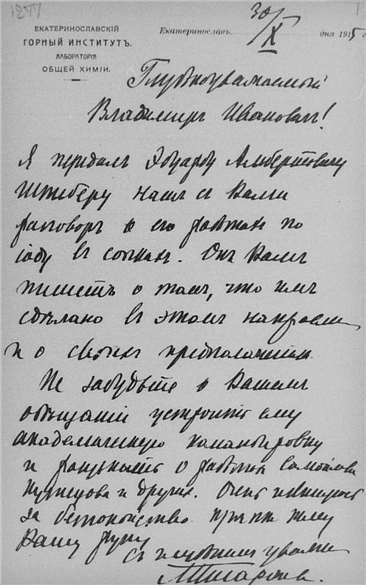 1277
1
ЕКАТЕРИНОСЛАВСКІЙ
ГОРНЫЙ ИНСТИТУТЪ.
ЛАБОРАТОРІЯ
ОБЩЕЙ ХИМІИ.
Екатеринославъ. 30/X дня 1915
Глубокоуважаемый
Владимиръ Ивановичъ!
Я передалъ Эдуарду Альбертовичу
Штеберу нашъ съ Вами
разговоръ о его работахъ по
іоду въ Онъ Вамъ
пишетъ о томъ, что имъ
сдѣлано въ этомъ направленіи
и о своихъ предположеніяхъ.
Не забудьте о Вашемъ
обѣщаніи устроить ему
академическую командировку
и разузнать о работахъ Самойлова
Кузнецова и другихъ. Очень извиняюсь
за безпокойство. Крѣпко жму
Вашу руку
съ уваженіемъ